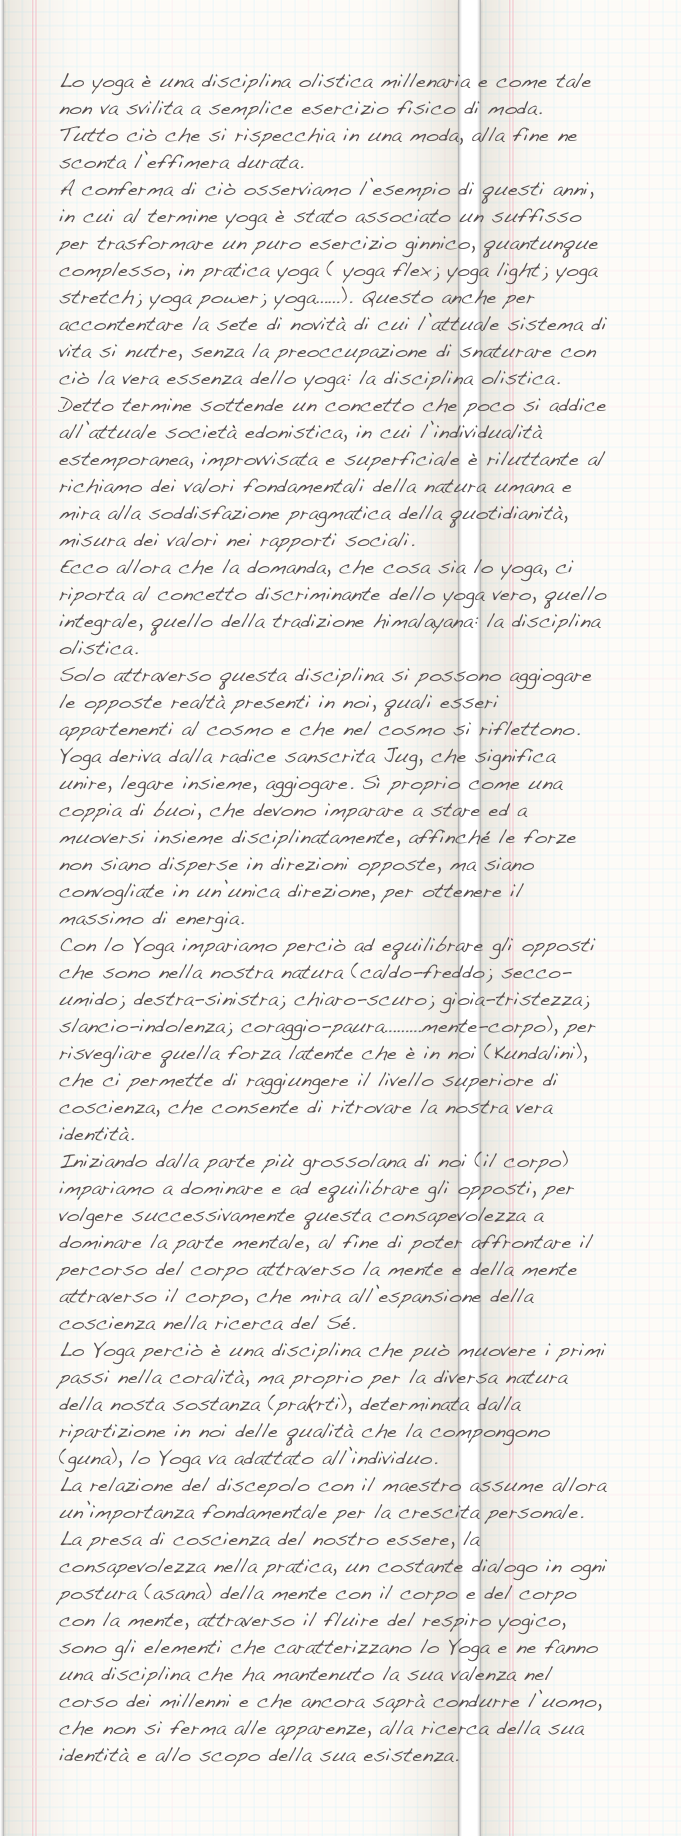 Lo yoga è una disciplina olistica millenaria e come tale
non va svilita a semplice esercizio fisico di moda.
Tutto ciò che si rispecchia in una moda, alla fine ne
sconta l'effimera durata.
A conferma di ciò osserviamo l'esempio di questi anni,
in cui al termine yoga è stato associato un suffisso
per trasformare un puro esercizio ginnico, quantunque
complesso, in pratica yoga ( yoga flex; yoga light; yoga
stretch; yoga power; yoga......). Questo anche per
accontentare la sete di novità di cui l'attuale sistema di
vita si nutre, senza la preoccupazione di snaturare con
ciò la vera essenza dello yoga: la disciplina olistica.
Detto termine sottende un concetto che poco si addice
all'attuale società edonistica, in cui l'individualità
estemporanea, improvvisata e superficiale è riluttante al
richiamo dei valori fondamentali della natura umana e
mira alla soddisfazione pragmatica della quotidianità,
misura dei valori nei rapporti sociali.
Ecco allora che la domanda, che cosa sia lo yoga, ci
riporta al concetto discriminante dello yoga vero, quello
integrale, quello della tradizione himalayana: la disciplina
olistica.
Solo attraverso questa disciplina si possono aggiogare
le opposte realtà presenti in noi, quali esseri
appartenenti al cosmo e che nel cosmo si riflettono.
Yoga deriva dalla radice sanscrita Jug, che significa
unire, legare insieme, aggiogare. Sì proprio come una
coppia di buoi, che devono imparare a stare ed a
muoversi insieme disciplinatamente, affinché le forze
non siano disperse in direzioni opposte, ma siano
convogliate in un'unica direzione, per ottenere il
massimo di energia.
Con lo Yoga impariamo perciò ad equilibrare gli opposti
che sono nella nostra natura (caldo-freddo; secco-
umido; destra-sinistra; chiaro-scuro; gioia-tristezza;
slancio-indolenza; coraggio-paura.........mente-corpo), per
risvegliare quella forza latente che è in noi (Kundalini),
che ci permette di raggiungere il livello superiore di
coscienza, che consente di ritrovare la nostra vera
identità.
Iniziando dalla parte più grossolana di noi (il corpo)
impariamo a dominare e ad equilibrare gli opposti, per
volgere successivamente questa consapevolezza a
dominare la parte mentale, al fine di poter affrontare il
percorso del corpo attraverso la mente e della mente
attraverso il corpo, che mira all'espansione della
coscienza nella ricerca del Sé.
Lo Yoga perciò è una disciplina che può muovere i primi
passi nella coralità, ma proprio per la diversa natura
della nosta sostanza (prakrti), determinata dalla
ripartizione in noi delle qualità che la compongono
(guna), lo Yoga va adattato all'individuo.
La relazione del discepolo con il maestro assume allora
un'importanza fondamentale per la crescita personale.
La presa di coscienza del nostro essere, la
consapevolezza nella pratica, un costante dialogo in ogni
postura (asana) della mente con il corpo e del corpo
con la mente, attraverso il fluire del respiro yogico,
sono gli elementi che caratterizzano lo Yoga e ne fanno
una disciplina che ha mantenuto la sua valenza nel
corso dei millenni e che ancora saprà condurre l'uomo,
che non si ferma alle apparenze, alla ricerca della sua
identità e allo scopo della sua esistenza.